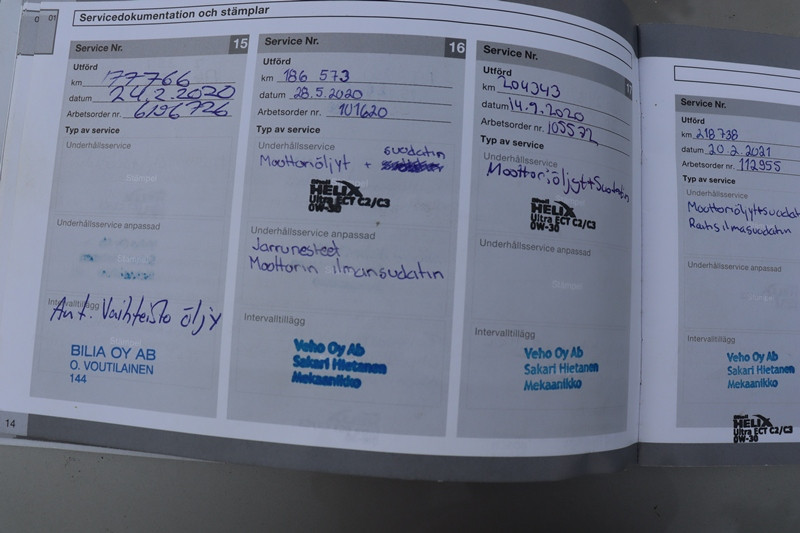 01
Servicedokumentation och stämplar
Service Nr. 15
Utförd
km 177766
datum 24.2.2020
Arbetsorder nr. 6196726
Typ av service
Underhållsservice
Underhållsservice anpassad
Intervalltillägg
Aut. Vaihteisto öljy
BILIA OY AB
O. VOUTILAINEN
144
14
Service Nr. 16
Utförd
km 186 573
datum 28.5.2020
Arbetsorder nr. 101620
Typ av service
Underhållsservice
suodatin
Moottoriöljyt +
Shell
HELIX
Ultra ECT C2/C3
0W-30
Underhållsservice anpassad
Jarrunesteet
Moottorin ilmansuodatin
Intervalltillägg
Veho Oy Ab
Sakari Hietanen
Mekaanikko
Service Nr. 17
Utförd
km 204343
datum 14.9.2020
Arbetsorder nr. 105572
Typ av service
Underhållsservice
Moottoriöljyt+Suodatin
Shell
HELIX
Ultra ECT C2/C3
0W-30
Underhållsservice anpassad
Intervalltillägg
Veho Oy Ab
Sakari Hietanen
Mekaanikko
Service Nr.
Utförd
km 218738
datum 20.2.2021
Arbetsorder nr. 112955
Typ av service
Underhållsservice
Raitisilmasuodatin
Underhållsservice anpassad
Intervalltillägg
Veho Oy Ab
Sakari Hietanen
Mekaanikko
Shell
HELIX
Ultra ECT C2/C3
0W-30